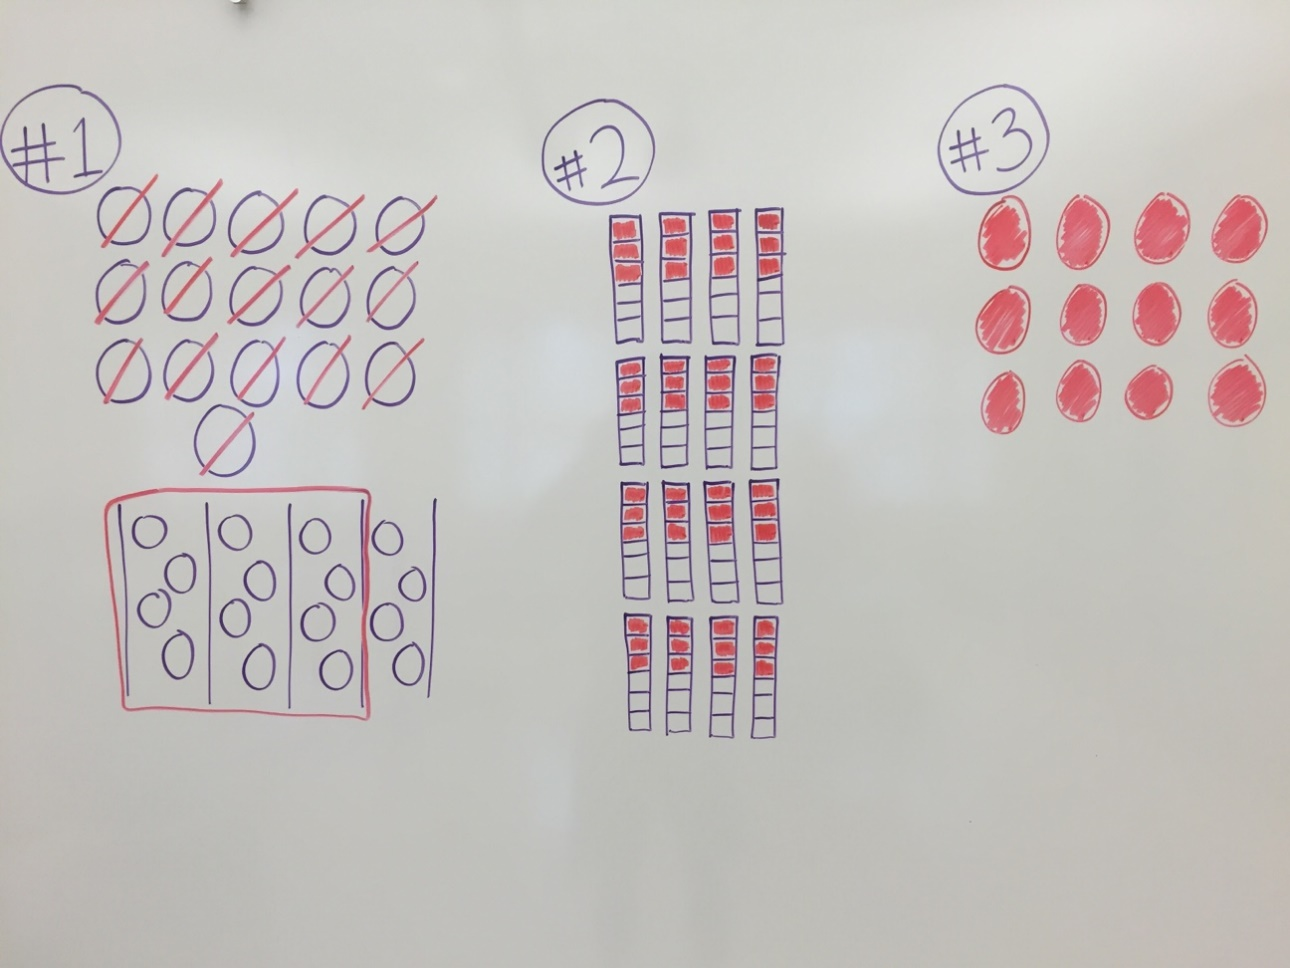 #1
#2
#3